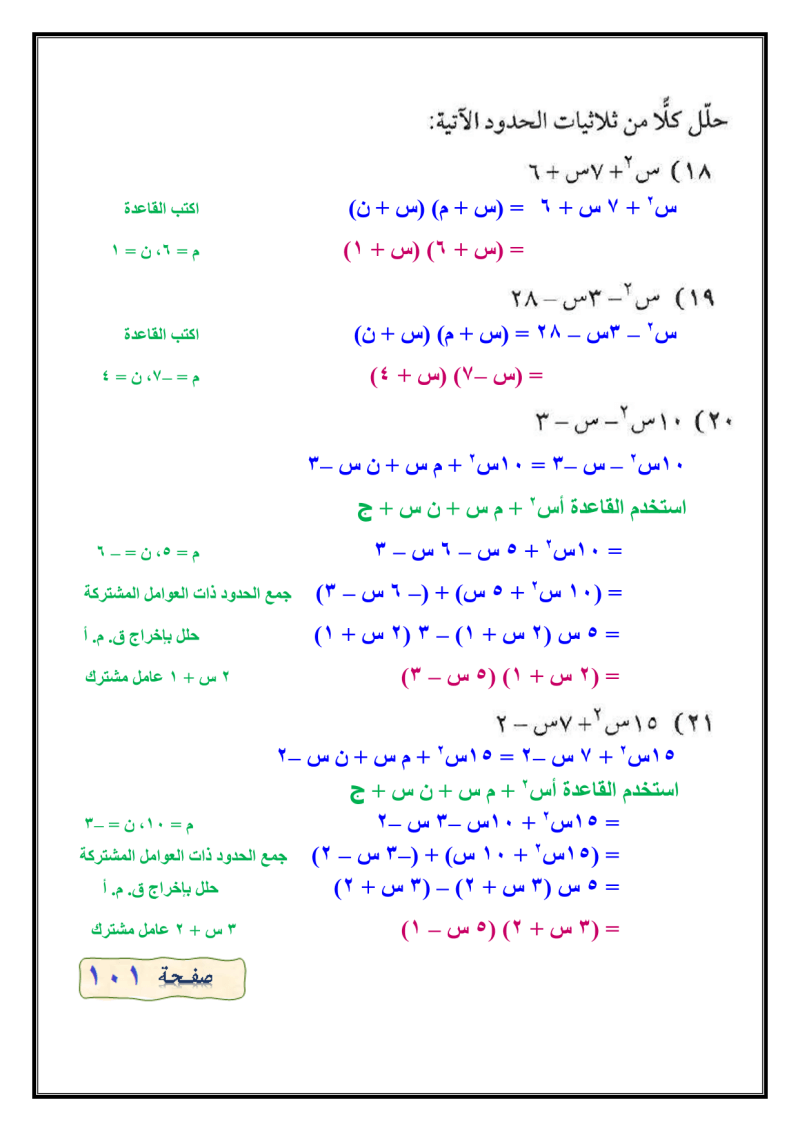 حلّل كلًّا من ثلاثيات الحدود الآتية:
١٨) س٢ + ٧س + ٦
س٢ + ٧ س + ٦ = (س + م) (س + ن) اكتب القاعدة
= (س + ٦) (س + ١) م = ٦، ن = ١
١٩) س٢ – ٣س – ٢٨
س٢ – ٣س – ٢٨ = (س + م) (س + ن) اكتب القاعدة
= (س –٧) (س + ٤) م = –٧، ن = ٤
٢٠) ١٠س٢ – س – ٣
١٠س٢ – س –٣ = ١٠س٢ + م س + ن س –٣
استخدم القاعدة أس٢ + م س + ن س + ج
= ١٠س٢ + ٥ س – ٦ س – ٣ م = ٥، ن = – ٦
= (١٠ س٢ + ٥ س) + (– ٦ س – ٣) جمع الحدود ذات العوامل المشتركة
= ٥ س (٢ س + ١) – ٣ (٢ س + ١) حلل بإخراج ق. م. أ
= (٢ س + ١) (٥ س – ٣) ٢ س + ١ عامل مشترك
٢١) ١٥س٢ + ٧س – ٢
١٥س٢ + ٧ س –٢ = ١٥س٢ + م س + ن س –٢
استخدم القاعدة أس٢ + م س + ن س + ج
= ١٥س٢ + ١٠س –٣ س –٢ م = ١٠، ن = –٣
= (١٥س٢ + ١٠ س) + (–٣ س – ٢) جمع الحدود ذات العوامل المشتركة
= ٥ س (٣ س + ٢) – (٣ س + ٢) حلل بإخراج ق. م. أ
= (٣ س + ٢) (٥ س – ١) ٣ س + ٢ عامل مشترك
صفحة ١٠١